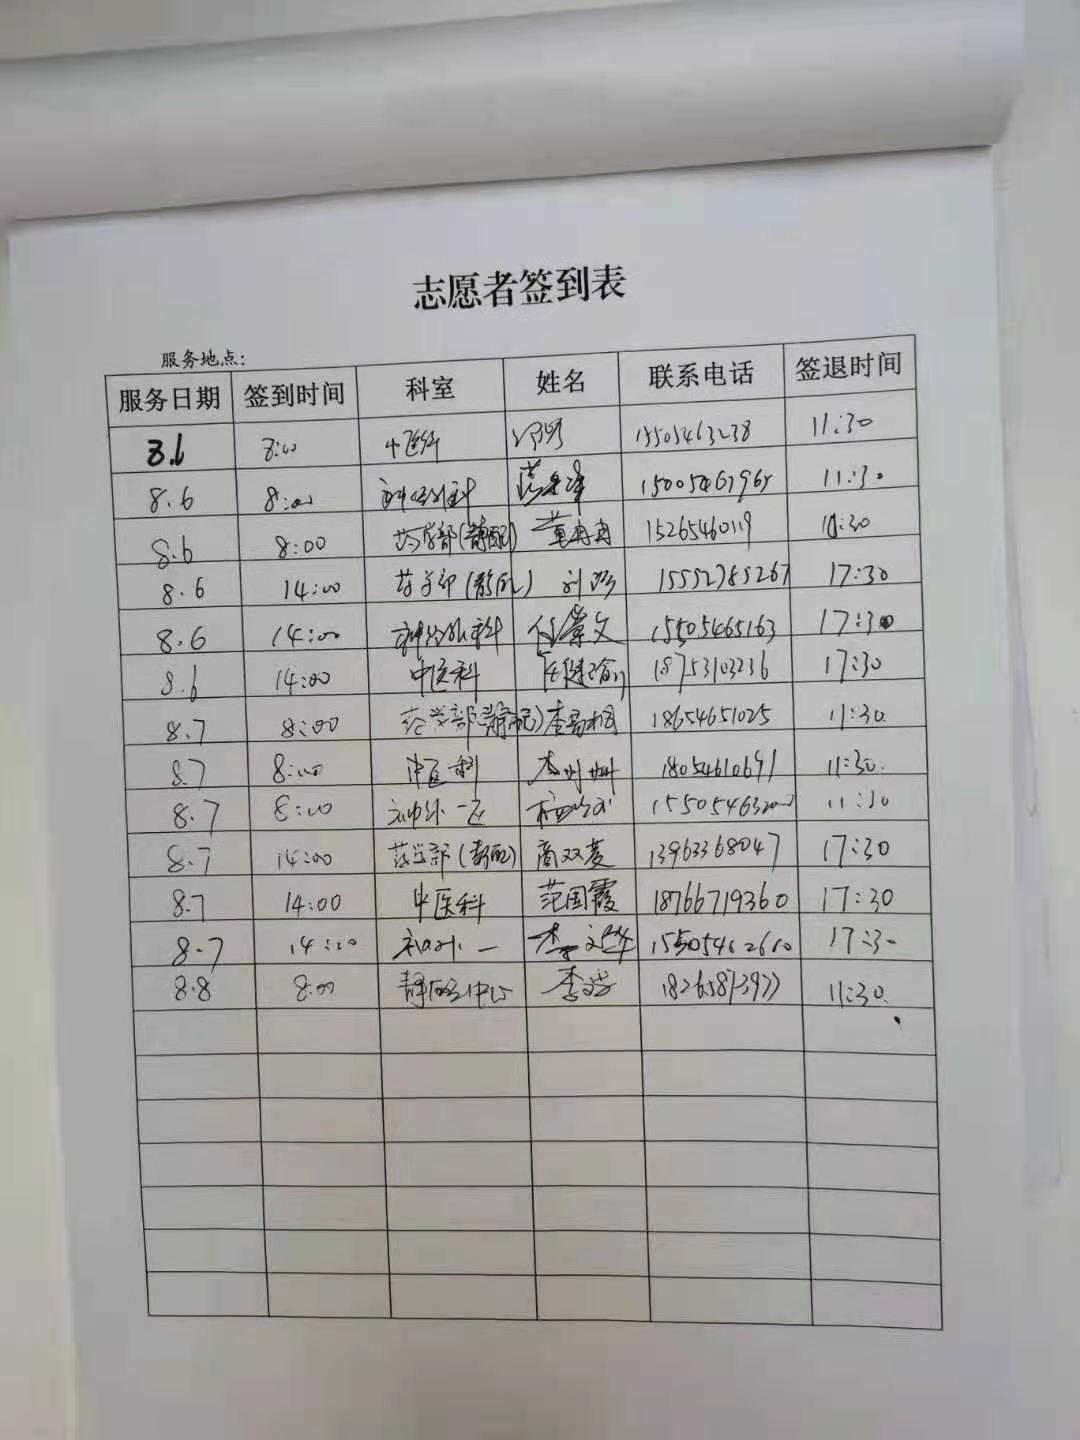 志愿者签到表
服务地点:
服务日期 签到时间 科室 姓名 联系电话 签退时间
8.6 8:00 中医科 15505463238 11:30
8.6 8:00 神经外科 11:30
8.6 8:00 药学部(静配) 董冉冉 15265460119 11:30
8.6 14:00 药学部(静配) 刘 15552785267 17:30
8.6 14:00 神经外科 任崇文 15505465163 17:30
8.6 14:00 中医科 18753103236 17:30
8.7 8:00 药学部(静配) 18654651025 11:30
8.7 8:00 中医科 李姗姗 18054610691 11:30
8.7 8:00 神外一区 11:30
8.7 14:00 药学部(静配) 商双菱 13963368047 17:30
8.7 14:00 中医科 范国霞 18766719360 17:30
8.7 14:00 神外一 李文华 15505462610 17:30
8.8 8:00 静配中心 李 18265873977 11:30